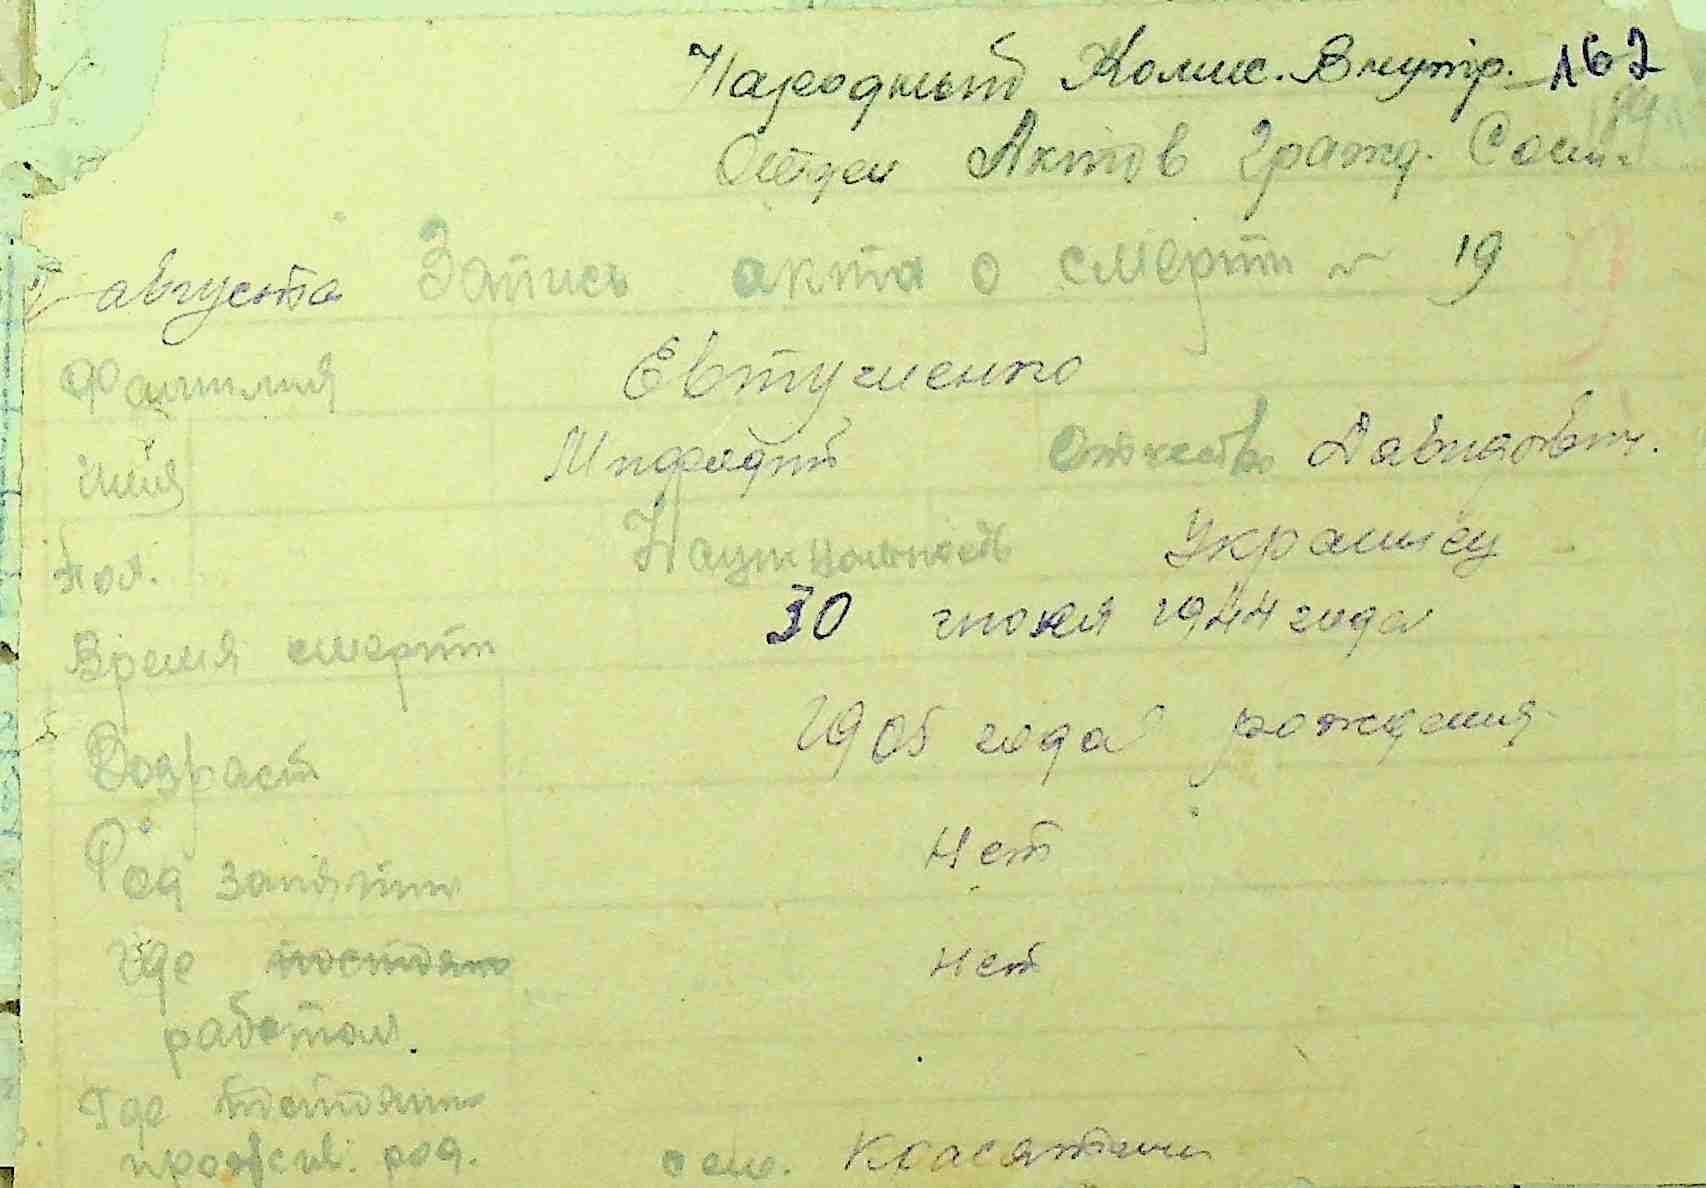 Народный Комис. Внутр. 162
Отдел Актов Гражд. Сост.
августа Запись акта о смерти № 19
Фамилия Евтушенко
Имя Отчество Давидович.
Пол. Национальность Украинец
Время смерти 30 1944 года
Возраст 1905 года рождения
Род занятий Нет
Где постоян нет
работал.
Где постоянно
прожив. род. с.